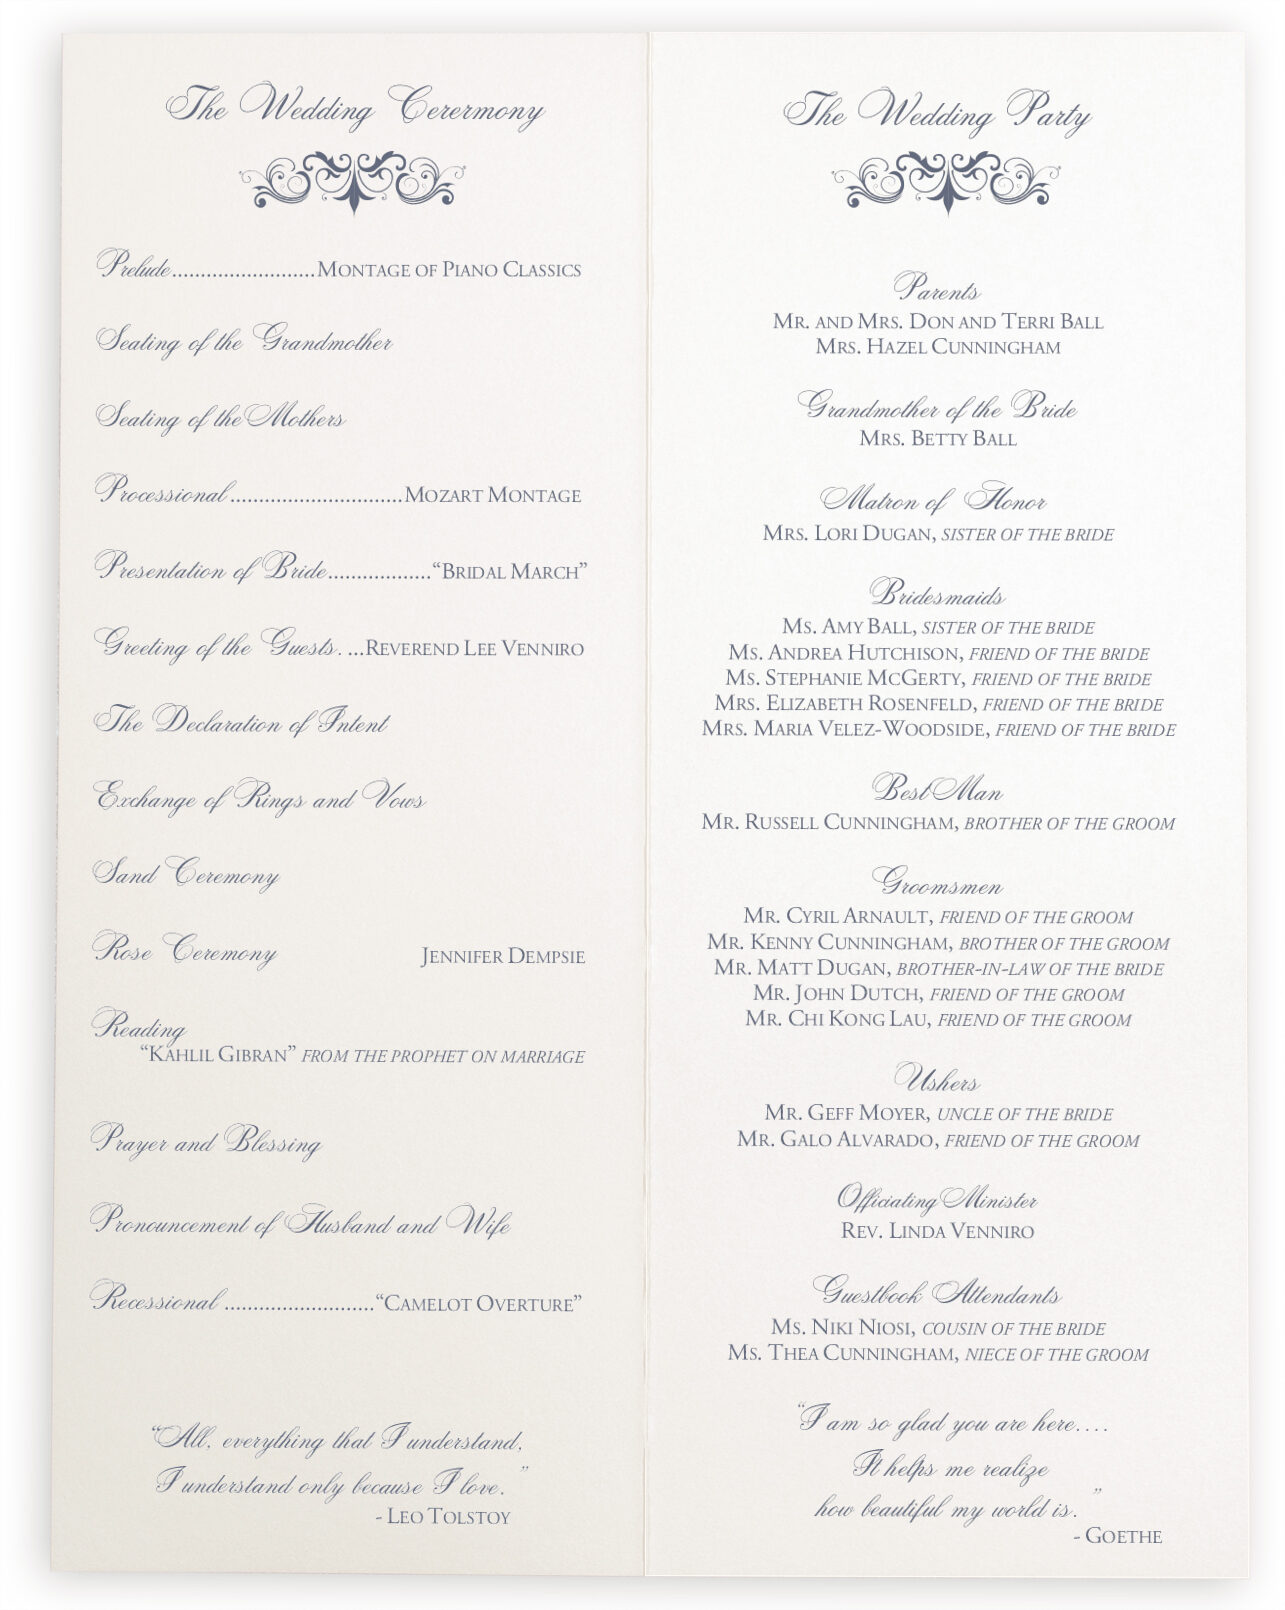 The Wedding Cerermony
Prelude.........................Montage of Piano Classics
Seating of the Grandmother
Seating of the Mothers
Processional..............................Mozart Montage
Presentation of Bride..................“Bridal March”
Greeting of the Guests. ...Reverend Lee Venniro
The Declaration of Intent
Exchange of Rings and Vows
Sand Ceremony
Rose Ceremony Jennifer Dempsie
Reading
“Kahlil Gibran” from the prophet on marriage
Prayer and Blessing
Pronouncement of Husband and Wife
Recessional ..........................“Camelot Overture”
“All, everything that I understand,
I understand only because I love.”
- Leo Tolstoy
The Wedding Party
Parents
Mr. and Mrs. Don and Terri Ball
Mrs. Hazel Cunningham
Grandmother of the Bride
Mrs. Betty Ball
Matron of Honor
Mrs. Lori Dugan, sister of the bride
Bridesmaids
Ms. Amy Ball, sister of the bride
Ms. Andrea Hutchison, friend of the bride
Ms. Stephanie McGerty, friend of the bride
Mrs. Elizabeth Rosenfeld, friend of the bride
Mrs. Maria Velez-Woodside, friend of the bride
Best Man
Mr. Russell Cunningham, brother of the groom
Groomsmen
Mr. Cyril Arnault, friend of the groom
Mr. Kenny Cunningham, brother of the groom
Mr. Matt Dugan, brother-in-law of the bride
Mr. John Dutch, friend of the groom
Mr. Chi Kong Lau, friend of the groom
Ushers
Mr. Geff Moyer, uncle of the bride
Mr. Galo Alvarado, friend of the groom
Officiating Minister
Rev. Linda Venniro
Guestbook Attendants
Ms. Niki Niosi, cousin of the bride
Ms. Thea Cunningham, niece of the groom
“I am so glad you are here....
It helps me realize
how beautiful my world is.”
- Goethe